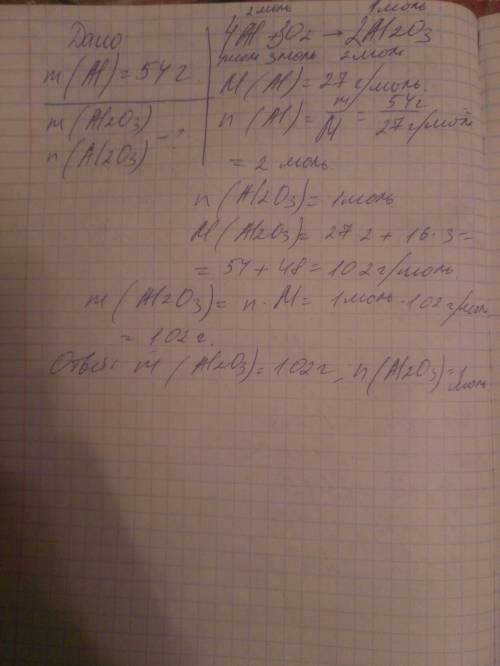 Дано
m(Al)=54г
m(Al2O3)
n(Al2O3) -?
2моль 1моль
4Al+3O2→2Al2O3
4моль 3моль 2моль
M(Al)=27г/моль.
n(Al)=m/M=54г/27г/моль
=2 моль
n(Al2O3)=1моль
M(Al2O3)=27·2+16·3=
=54+48=102г/моль
m(Al2O3)=n·M=1моль·102г/моль
=102г.
Ответ: m(Al2O3)=102г, n(Al2O3)=1
моль